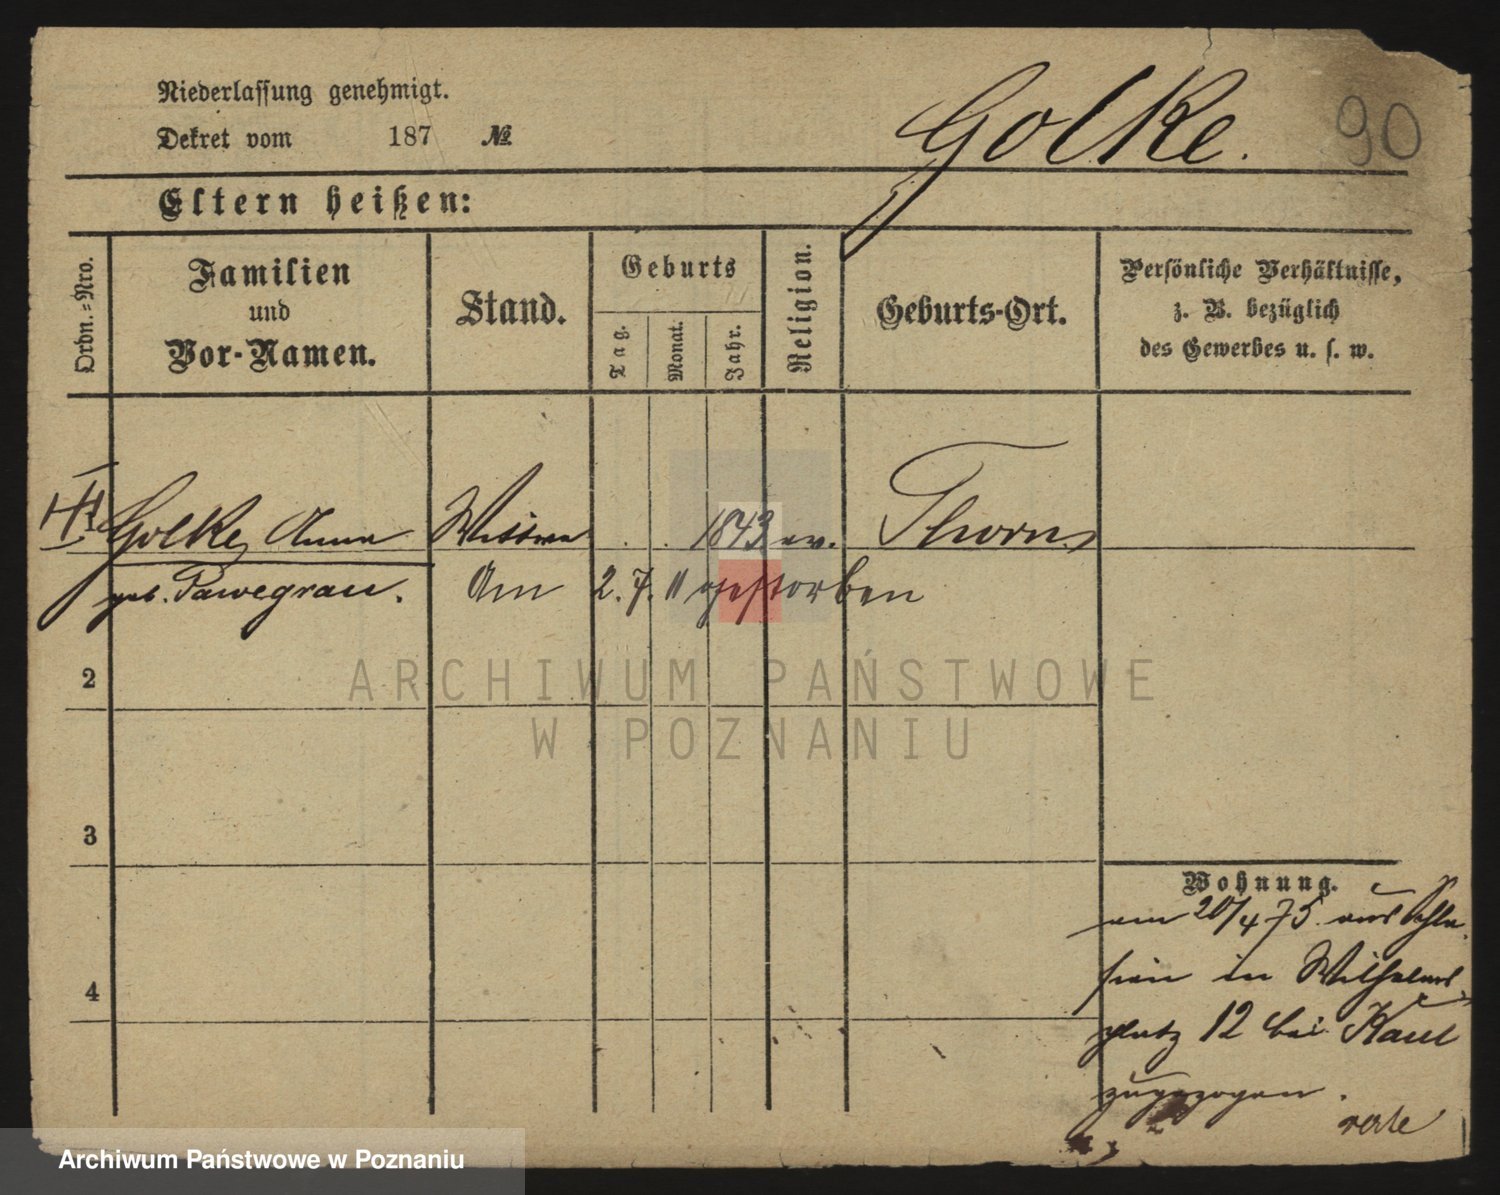 Niederlassung genehmigt.
Dekret vom 187 №
Golke. 90
Eltern heißen:
Ordn.-Nro.
Familien
und
Vor-Namen.
Stand.
Geburts
Tag.
Monat.
Jahr.
Religion.
Geburts-Ort.
Persönliche Verhältnisse,
z. B. bezüglich
des Gewerbes u. s. w.
Golke, Anna Wittwe 1843 ev. Thorn
geb. Pawegrau. Am 2. 7. 11 gestorben
2
3
4
Wohnung.
am 20/4 75. aus Schle-
sien in Wilhelms-
platz 12 bei Kaul
zugezogen.
verte
ARCHIWUM PAŃSTWOWE
W POZNANIU
Archiwum Państwowe w Poznaniu